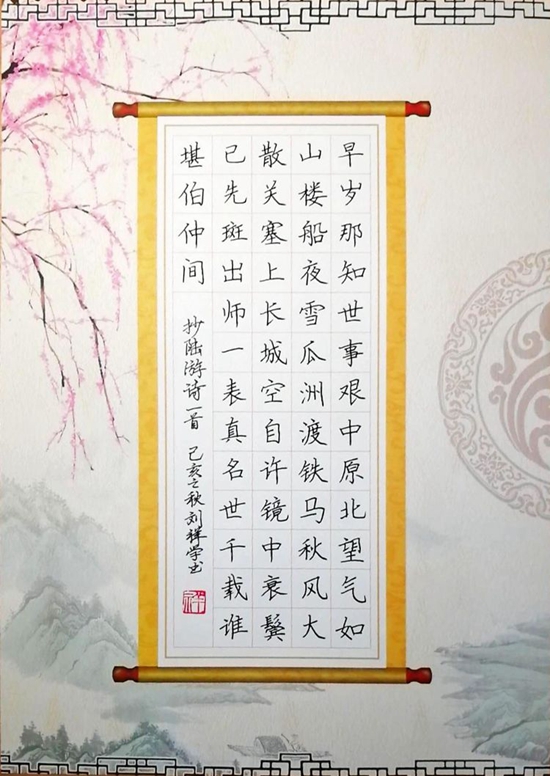 早岁那知世事艰中原北望气如
山楼船夜雪瓜洲渡铁马秋风大
散关塞上长城空自许镜中衰鬓
已先斑出师一表真名世千载谁
堪伯仲间
抄陆游诗一首 己亥之秋刘祥学书